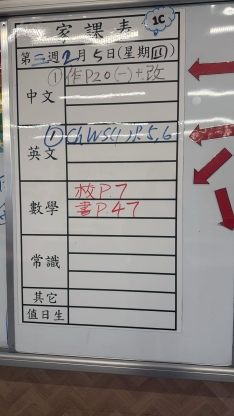 家課表 1C
第三週2月5日(星期四)
中文 ①作P20(一)+改
英文 ①Ch WS(1) P.5,6
數學 校P7
書P.47
常識
其它
值日生